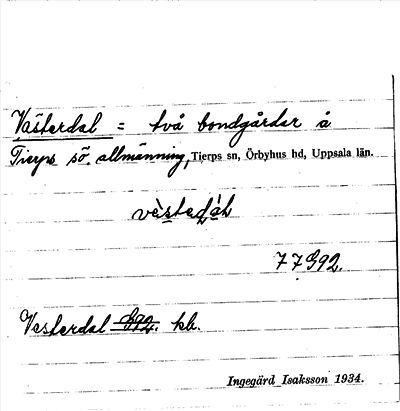 Västerdal = två bondgårdar å
Tierps sö. allmänning, Tierps sn, Örbyhus hd, Uppsala län.
77G92.
Vesterdal G92. kb.
Ingegärd Isaksson 1934.